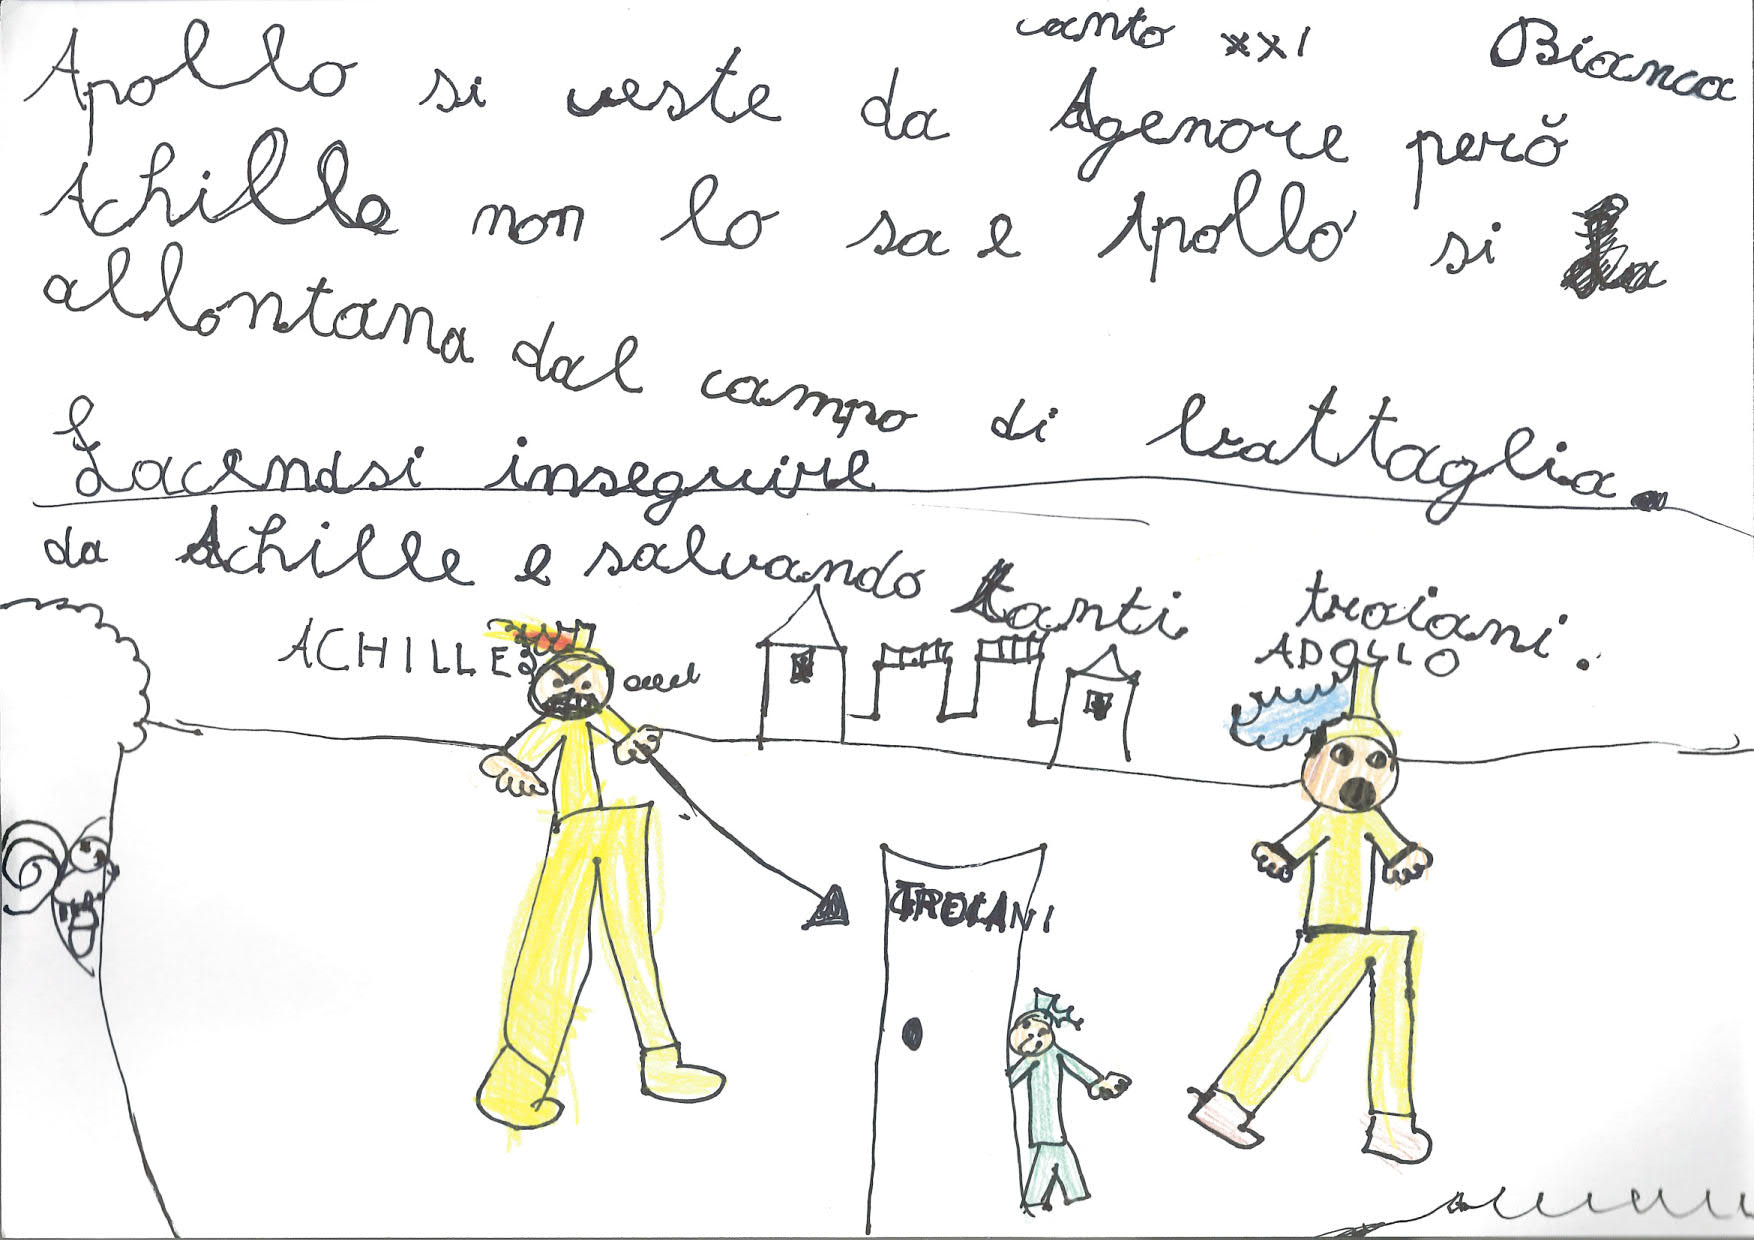 canto XXI Bianca
Apollo si veste da Agenore però
Achille non lo sa e Apollo si
allontana dal campo di battaglia.
facendsi inseguire
da Achille e salvando tanti troiani.
ACHILLE
APOLLO
TROIANI